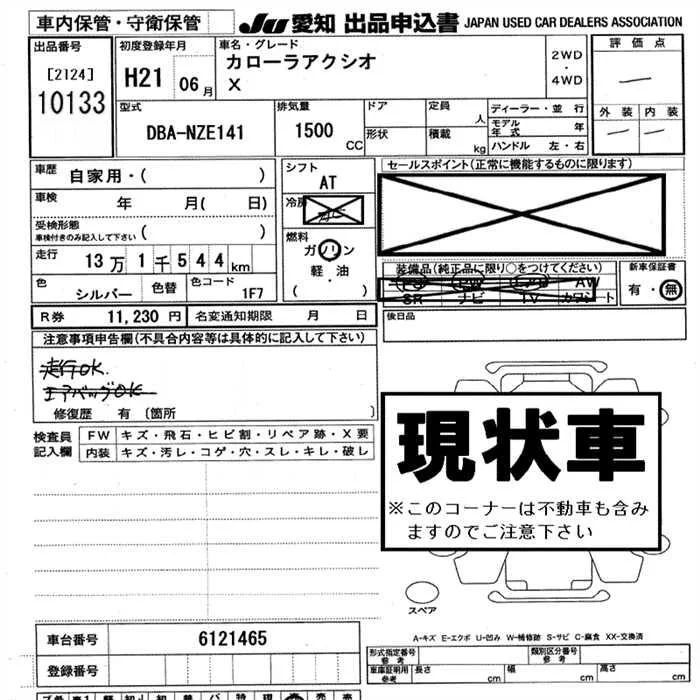 車内保管・守衛保管
JU 愛知 出品申込書 JAPAN USED CAR DEALERS ASSOCIATION
出品番号
[2124]
10133
初度登録年月
H21 06月
車名・グレード
カローラアクシオ
X
2WD
・
4WD
評価点
外装 内装
型式
DBA-NZE141
排気量
1500
CC
ドア
形状
定員
人
積載
kg
ディーラー・並行
モデル年式 年
ハンドル 左・右
車歴 自家用・( )
車検 年 月( 日)
受検形態
車検付きのみ記入して下さい ( )
走行 13万1千544km
色 シルバー 色替 色コード 1F7
シフト
AT
冷房
燃料
ガソリン
軽・油
( )
セールスポイント(正常に機能するものに限ります)
装備品(純正品に限り○をつけてください)
PS PW AW
SR ナビ TV カワシート
新車保証書
有・無
R券 11,230 円 名変通知期限 月 日
後日品
注意事項申告欄(不具合内容等は具体的に記入して下さい)
走行OK.
エアバッグOK
修復歴 有 〔箇所 〕
検査員
記入欄
FW キズ・飛石・ヒビ割・リペア跡・X要
内装 キズ・汚レ・コゲ・穴・スレ・キレ・破レ
現状車
※このコーナーは不動車も含み
ますのでご注意下さい
スペア
A-キズ E-エクボ U-凹み W-補修跡 S-サビ C-腐食 XX-交換済
車台番号 6121465
登録番号
形式指定番号
参考
類別区分番号
参考
車庫証明用
参考
長さ cm 幅 cm 高さ cm